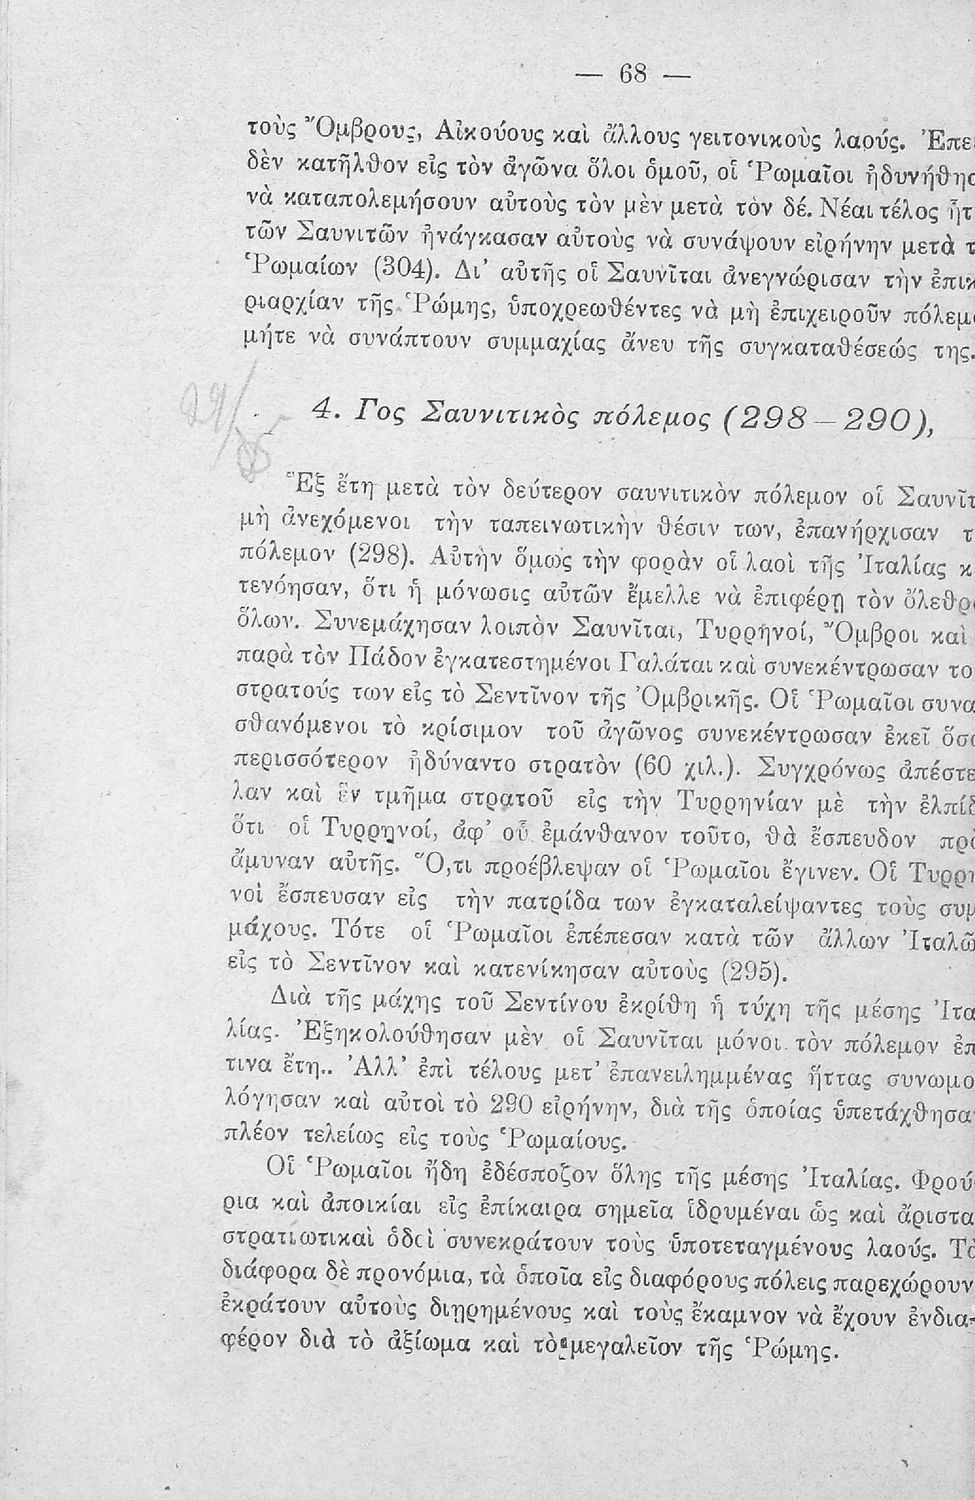 — 68 —
τοὺς Ὄμβρους, Αἰκούους καὶ ἄλλους γειτονικοὺς λαούς. Ἐπε
δὲν κατῆλθον εἰς τὸν ἀγῶνα ὅλοι ὁμοῦ, οἱ Ῥωμαῖοι ἠδυνήθησ
νὰ καταπολεμήσουν αὐτοὺς τὸν μὲν μετὰ τὸν δέ. Νέαι τέλος ἧτ
τῶν Σαυνιτῶν ἠνάγκασαν αὐτοὺς νὰ συνάψουν εἰρήνην μετὰ τ
Ῥωμαίων (304). Δι’ αὐτῆς οἱ Σαυνῖται ἀνεγνώρισαν τὴν ἐπικ
ριαρχίαν τῆς Ῥώμης, ὑποχρεωθέντες νὰ μὴ ἐπιχειροῦν πόλεμ
μήτε νὰ συνάπτουν συμμαχίας ἄνευ τῆς συγκαταθέσεώς της.
4. Γος Σαυνιτικὸς πόλεμος (298 — 290),
Ἓξ ἔτη μετὰ τὸν δεύτερον σαυνιτικὸν πόλεμον οἱ Σαυνῖτ
μὴ ἀνεχόμενοι τὴν ταπεινωτικὴν θέσιν των, ἐπανήρχισαν τ
πόλεμον (298). Αὐτὴν ὅμως τὴν φορὰν οἱ λαοὶ τῆς Ἰταλίας κ
τενόησαν, ὅτι ἡ μόνωσις αὐτῶν ἔμελλε νὰ ἐπιφέρῃ τὸν ὄλεθρ
ὅλων. Συνεμάχησαν λοιπὸν Σαυνῖται, Τυρρηνοί, Ὄμβροι καὶ
παρὰ τὸν Πάδον ἐγκατεστημένοι Γαλάται καὶ συνεκέντρωσαν το
στρατούς των εἰς τὸ Σεντῖνον τῆς Ὀμβρικῆς. Οἱ Ῥωμαῖοι συνα
σθανόμενοι τὸ κρίσιμον τοῦ ἀγῶνος συνεκέντρωσαν ἐκεῖ ὅσο
περισσότερον ἠδύναντο στρατὸν (60 χιλ.). Συγχρόνως ἀπέστε
λαν καὶ ἓν τμῆμα στρατοῦ εἰς τὴν Τυρρηνίαν μὲ τὴν ἐλπίδ
ὅτι οἱ Τυρρηνοί, ἀφ’ οὗ ἐμάνθανον τοῦτο, θὰ ἔσπευδον πρὸ
ἄμυναν αὐτῆς. Ὅ,τι προέβλεψαν οἱ Ῥωμαῖοι ἔγινεν. Οἱ Τυρρη
νοὶ ἔσπευσαν εἰς τὴν πατρίδα των ἐγκαταλείψαντες τοὺς συμ
μάχους. Τότε οἱ Ῥωμαῖοι ἐπέπεσαν κατὰ τῶν ἄλλων Ἰταλῶ
εἰς τὸ Σεντῖνον καὶ κατενίκησαν αὐτοὺς (295).
Διὰ τῆς μάχης τοῦ Σεντίνου ἐκρίθη ἡ τύχη τῆς μέσης Ἰτα
λίας. Ἐξηκολούθησαν μὲν οἱ Σαυνῖται μόνοι τὸν πόλεμον ἐπ
τινα ἔτη.. Ἀλλ’ ἐπὶ τέλους μετ’ ἐπανειλημμένας ἥττας συνωμο
λόγησαν καὶ αὐτοὶ τὸ 290 εἰρήνην, διὰ τῆς ὁποίας ὑπετάχθησα
πλέον τελείως εἰς τοὺς Ῥωμαίους.
Οἱ Ῥωμαῖοι ἤδη ἐδέσποζον ὅλης τῆς μέσης Ἰταλίας. Φρού
ρια καὶ ἀποικίαι εἰς ἐπίκαιρα σημεῖα ἱδρυμέναι ὡς καὶ ἄριστα
στρατιωτικαὶ ὁδοὶ συνεκράτουν τοὺς ὑποτεταγμένους λαούς. Τὰ
διάφορα δὲ προνόμια, τὰ ὁποῖα εἰς διαφόρους πόλεις παρεχώρουν
ἐκράτουν αὐτοὺς διῃρημένους καὶ τοὺς ἔκαμνον νὰ ἔχουν ἐνδια-
φέρον διὰ τὸ ἀξίωμα καὶ τὸ μεγαλεῖον τῆς Ῥώμης.